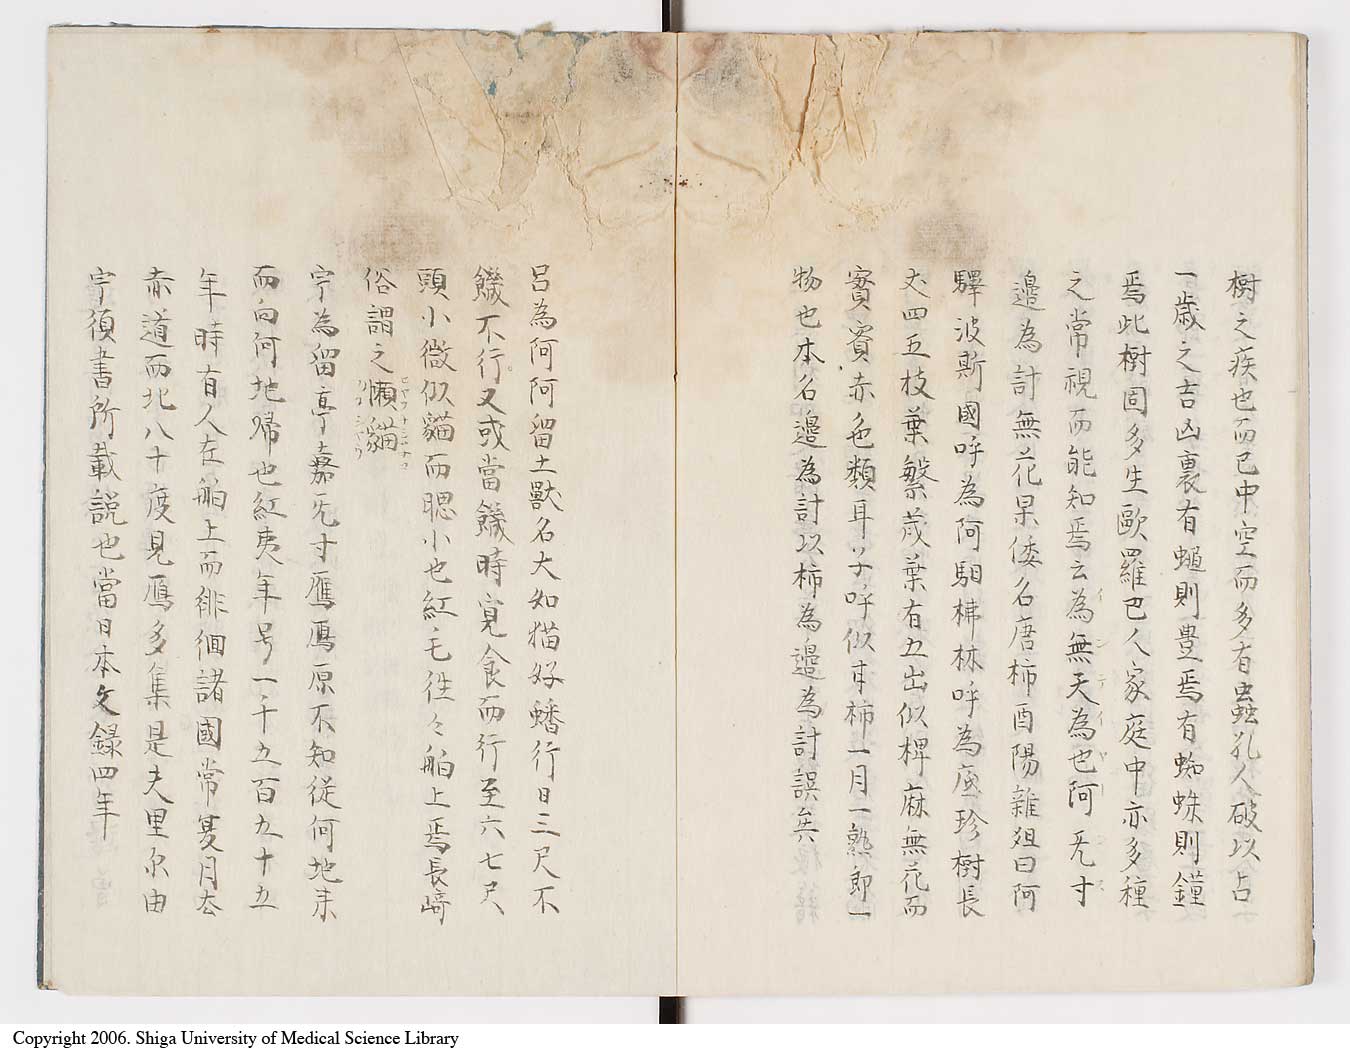 樹之疾也而已中空而多有蟲孔人破以占
一歳之吉凶裏有蠅則豊焉有蜘蛛則鐘
焉此樹固多生歐羅巴人家庭中亦多種
之常視而能知焉云為無天為也阿旡寸
インデイヤーンス
邉為討無花果倭名唐柿酉陽雜俎曰阿
驛波斯國呼為阿馹柫林呼為底珍樹長
丈四五枝葉繁茂葉有五出似椑麻無花而
實實赤色類耳子呼似甘柿一月一熟即一
物也本名邉為討以柿為邉為討誤矣
呂為阿阿留土獸名大如猫好蟠行日三尺不
饑不行又或當饑時覓食而行至六七尺
頭小微似貓而聰小也紅毛徃々舶上焉長﨑
俗謂之懶貓
宁為留亭嘉旡寸鴈鴈原不知従何地来
而向何地帰也紅夷年号一千五百九十五
年時有人在舶上而徘徊諸國常夏月去
赤道而北八十度見鴈多集是夫里尓由
宁須書所載説也當日本文録四年